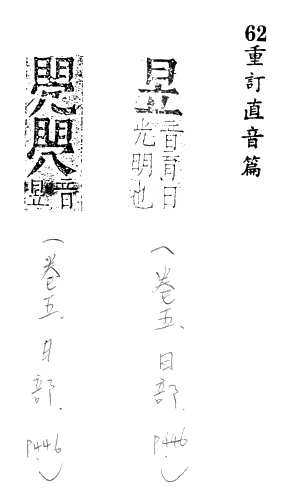 62重訂直音篇
昱
音育日
光明也
(卷五、日部. P446)
音昱
(卷五、日部. P446)